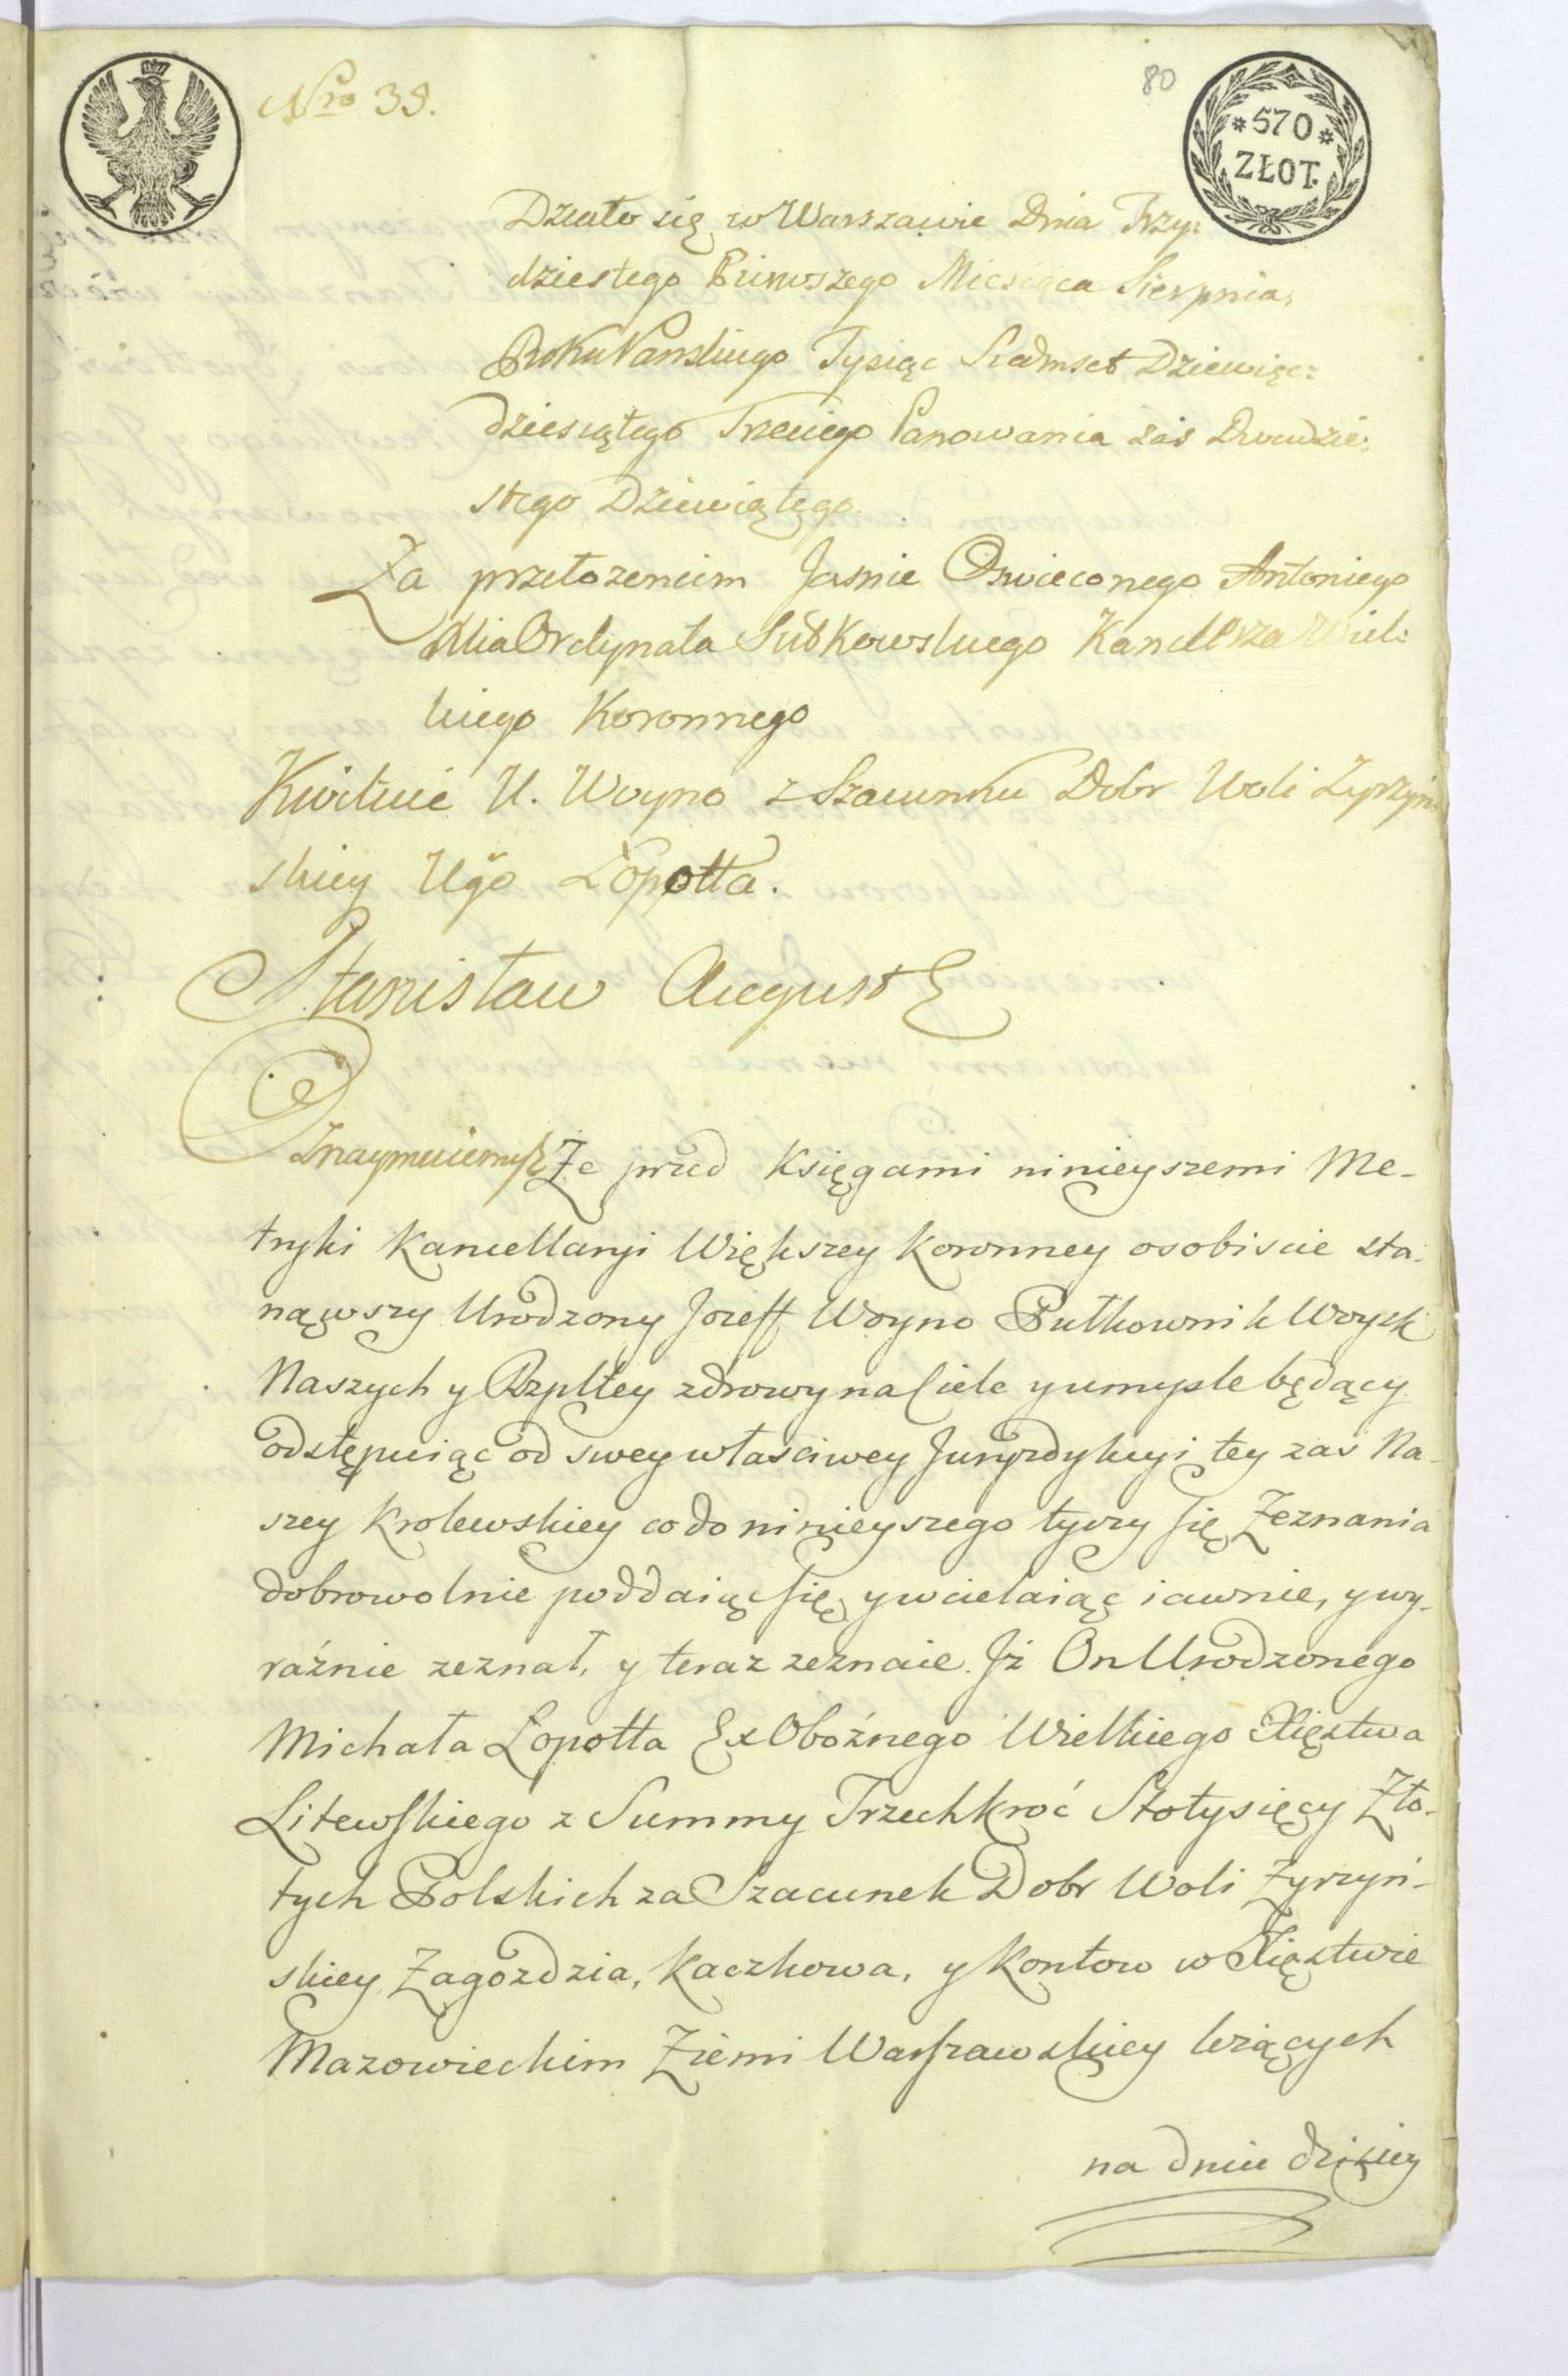 Nro 39.
80
*570*
ZŁOT.
Działo się w Warszawie Dnia Trzy:
dziestego Pierwszego Miesiąca Sierpnia,
Roku Panskiego Tysiąc Siedmset Dziewięc:
dziesiątego Trzeciego Panowania zaś Dwudzie:
stego Dziewiątego.
Za przełozeniem Jasnie Oswieconego Antoniego
Xcia Ordynata Sułkowskiego Kanclerza Wiel:
kiego Koronnego
Kwituie U. Woyno z Szacunku Dobr Woli Zyrzyn:
skiey Ugo Łopotta.
Stanisław August
Oznaymuiemy Ze przed Księgami ninieyszemi Me-
tryki Kancellaryi Większey Koronney osobiscie sta-
nąwszy Urodzony Jozeff Woyno Pułkownik Woysk
Naszych y Rzpltey zdrowy na Ciele y umysle będący
odstępuiąc od swey własciwey Juryzdykcyi tey zas Na-
szey Krolewskiey co do ninieyszego tyczy się Zeznania
dobrowolnie poddaiąc się, y wcielaiąc iawnie, y wy-
raźnie zeznał, y teraz zeznaie. Jż On Urodzonego
Michała Łopotta Ex Oboźnego Wielkiego Xięstwa
Litewskiego z Summy Trzechkroć Stotysięcy Zło-
tych Polskich za Szacunek Dobr Woli Zyrzyń-
skiey Zagozdzia, Kaczkowa, y Kontow w Xięstwie
Mazowieckim Ziemi Warszawskiey leżących
na dniu dzisiey